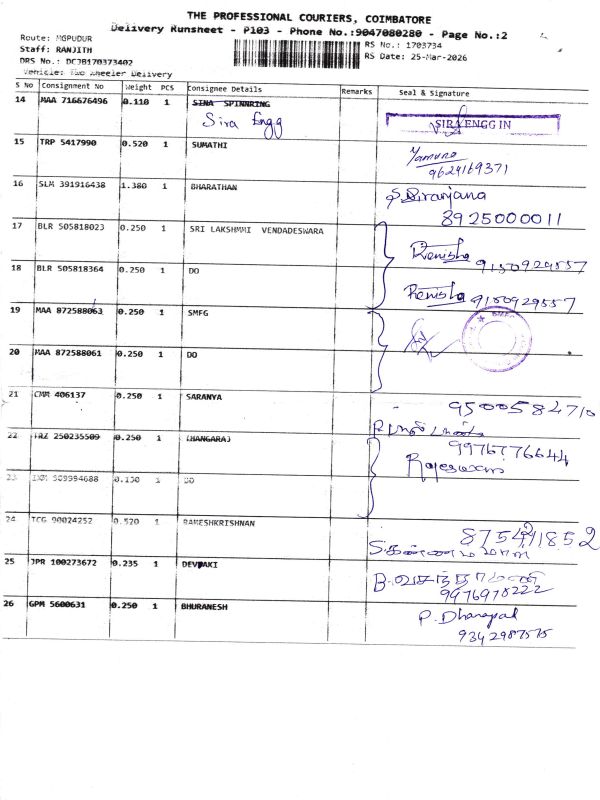 THE PROFESSIONAL COURIERS, COIMBATORE
Delivery Runsheet - P103 - Phone No.:9047080280 - Page No.:2
Route: MGPUDUR
RS No.: 1703734
Staff: RANJITH
RS Date: 25-Mar-2026
DRS No.: DCJB170373402
Vehicle: Two Wheeler Delivery
S No Consignment No Weight PCS Consignee Details Remarks Seal & Signature
14 MAA 716676496 0.110 1 SINA SPINNRING
Sira Engg
SIRA ENGG IN
15 TRP 5417990 0.520 1 SUMATHI
Yamuna
9624169371
16 SLM 391916438 1.380 1 BHARATHAN
S. Niranjana
8925000011
17 BLR 505818023 0.250 1 SRI LAKSHMMI VENDADESWARA
Renisha 9150929557
18 BLR 505818364 0.250 1 DO
Renisha 9150929557
19 MAA 872588063 0.250 1 SMFG
20 MAA 872588061 0.250 1 DO
21 CMM 406137 0.250 1 SARANYA
9500584710
22 TRZ 250235509 0.250 1 THANGARAJ
9976776644
Rajeswari
23 0.130 1 DO
24 TCG 90024252 0.520 1 RAMESHKRISHNAN
25 JPR 100273672 0.235 1 DEVPAKI
9976978222
26 GPM 5600631 0.250 1 BHURANESH
P. Dhanapal
9342987575